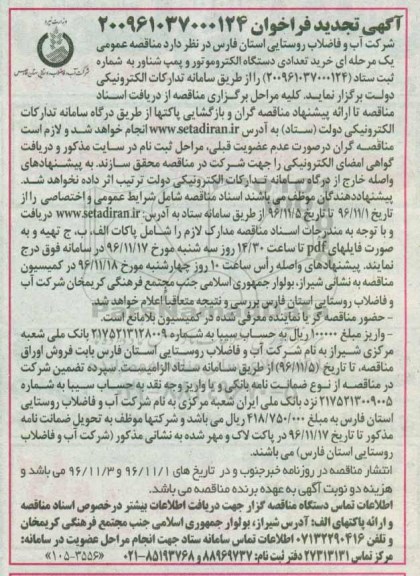 آگهی تجدید فراخوان ۲۰۰۹۶۱۰۳۷۰۰۰۱۲۴
شرکت آب و فاضلاب روستایی استان فارس در نظر دارد مناقصه عمومی
یک مرحله ای خرید تعدادی دستگاه الکتروموتور و پمپ شناور به شماره
ثبت ستاد (۲۰۰۹۶۱۰۳۷۰۰۰۱۲۴) را از طریق سامانه تدارکات الکترونیکی
دولت برگزار نماید. کلیه مراحل برگزاری مناقصه از دریافت اسناد
مناقصه تا ارائه پیشنهاد مناقصه گران و بازگشایی پاکتها از طریق درگاه سامانه تدارکات
الکترونیکی دولت (ستاد) به آدرس www.setadiran.ir انجام خواهد شد و لازم است
مناقصه گران درصورت عدم عضویت قبلی، مراحل ثبت نام در سایت مذکور و دریافت
گواهی امضای الکترونیکی را جهت شرکت در مناقصه محقق سازند. به پیشنهادهای
واصله خارج از درگاه سامانه تدارکات الکترونیکی دولت ترتیب اثر داده نخواهد شد.
پیشنهاددهندگان موظف می باشند اسناد مناقصه شامل شرایط عمومی و اختصاصی را از
تاریخ ۹۶/۱۱/۱ تا تاریخ ۹۶/۱۱/۵ از طریق سامانه ستاد به آدرس: www.setadiran.ir دریافت
و با توجه به مندرجات اسناد مناقصه مدارک لازم را شامل پاکات الف، ب، ج تهیه و به
صورت فایلهای pdf تا ساعت ۱۴/۳۰ روز سه شنبه مورخ ۹۶/۱۱/۱۷ در سامانه فوق درج
نمایند. پیشنهادهای واصله رأس ساعت ۱۰ روز چهارشنبه مورخ ۹۶/۱۱/۱۸ در کمیسیون
مناقصه به نشانی شیراز، بولوار جمهوری اسلامی جنب مجتمع فرهنگی کریمخان شرکت آب
و فاضلاب روستایی استان فارس بررسی و نتیجه متعاقباً اعلام خواهد شد.
- حضور مناقصه گر یا نماینده معرفی شده در کمیسیون بلامانع است.
- واریز مبلغ ۱۰۰۰۰۰ ریال به حساب سیبا به شماره ۲۱۷۵۲۱۳۱۲۸۰۰۹ بانک ملی شعبه
مرکزی شیراز به نام شرکت آب و فاضلاب روستایی استان فارس بابت فروش اوراق
مناقصه، تا تاریخ (۹۶/۱۱/۵) از طریق سامانه ستاد الزامیست. سپرده تضمین شرکت
در مناقصه از نوع ضمانت نامه بانکی و یا واریز وجه نقد به حساب سیبا به شماره
۲۱۷۵۲۱۳۰۰۹۰۰۵ نزد بانک ملی ایران شعبه مرکزی به نام شرکت آب و فاضلاب روستایی
استان فارس به مبلغ ۴۱۸/۷۵۰/۰۰۰ ریال می باشد و شرکتها موظف به تحویل ضمانت نامه
مذکور تا تاریخ ۹۶/۱۱/۱۷ در پاکت لاک و مهر شده به نشانی مذکور (شرکت آب و فاضلاب
روستایی استان فارس) می باشند.
انتشار مناقصه در روزنامه خبرجنوب و در تاریخ های ۹۶/۱۱/۱ و ۹۶/۱۱/۳ می باشد و
هزینه دو نوبت آگهی به عهده برنده مناقصه می باشد.
اطلاعات تماس دستگاه مناقصه گزار جهت دریافت اطلاعات بیشتر درخصوص اسناد مناقصه
و ارائه پاکتهای الف: آدرس شیراز، بولوار جمهوری اسلامی جنب مجتمع فرهنگی کریمخان
و تلفن ۰۷۱۳۲۲۹۰۴۱۶ اطلاعات تماس سامانه ستاد جهت انجام مراحل عضویت در سامانه:
مرکز تماس ۲۷۳۱۳۱۳۱ دفتر ثبت نام: ۸۸۹۶۹۷۳۷ و ۸۵۱۹۳۷۶۸-۰۲۱ «۱۰۵-۳۵۵۶»